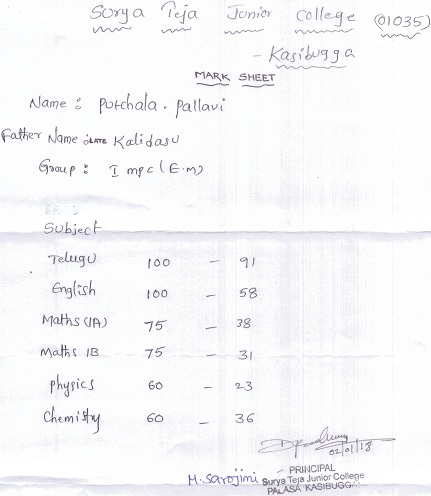 Surya Teja Junior College (01035)
- Kasibugga
MARK SHEET
Name : Potchala . Pallavi
Father Name : LATE Kalidasu
Group : I mpc (E.m)
Subject
Telugu 100 - 91
English 100 - 58
Maths (IA) 75 - 38
Maths IB 75 - 31
physics 60 - 23
Chemistry 60 - 36
02/01/18
M. Sarojini
PRINCIPAL
Surya Teja Junior College
PALASA KASIBUGGA